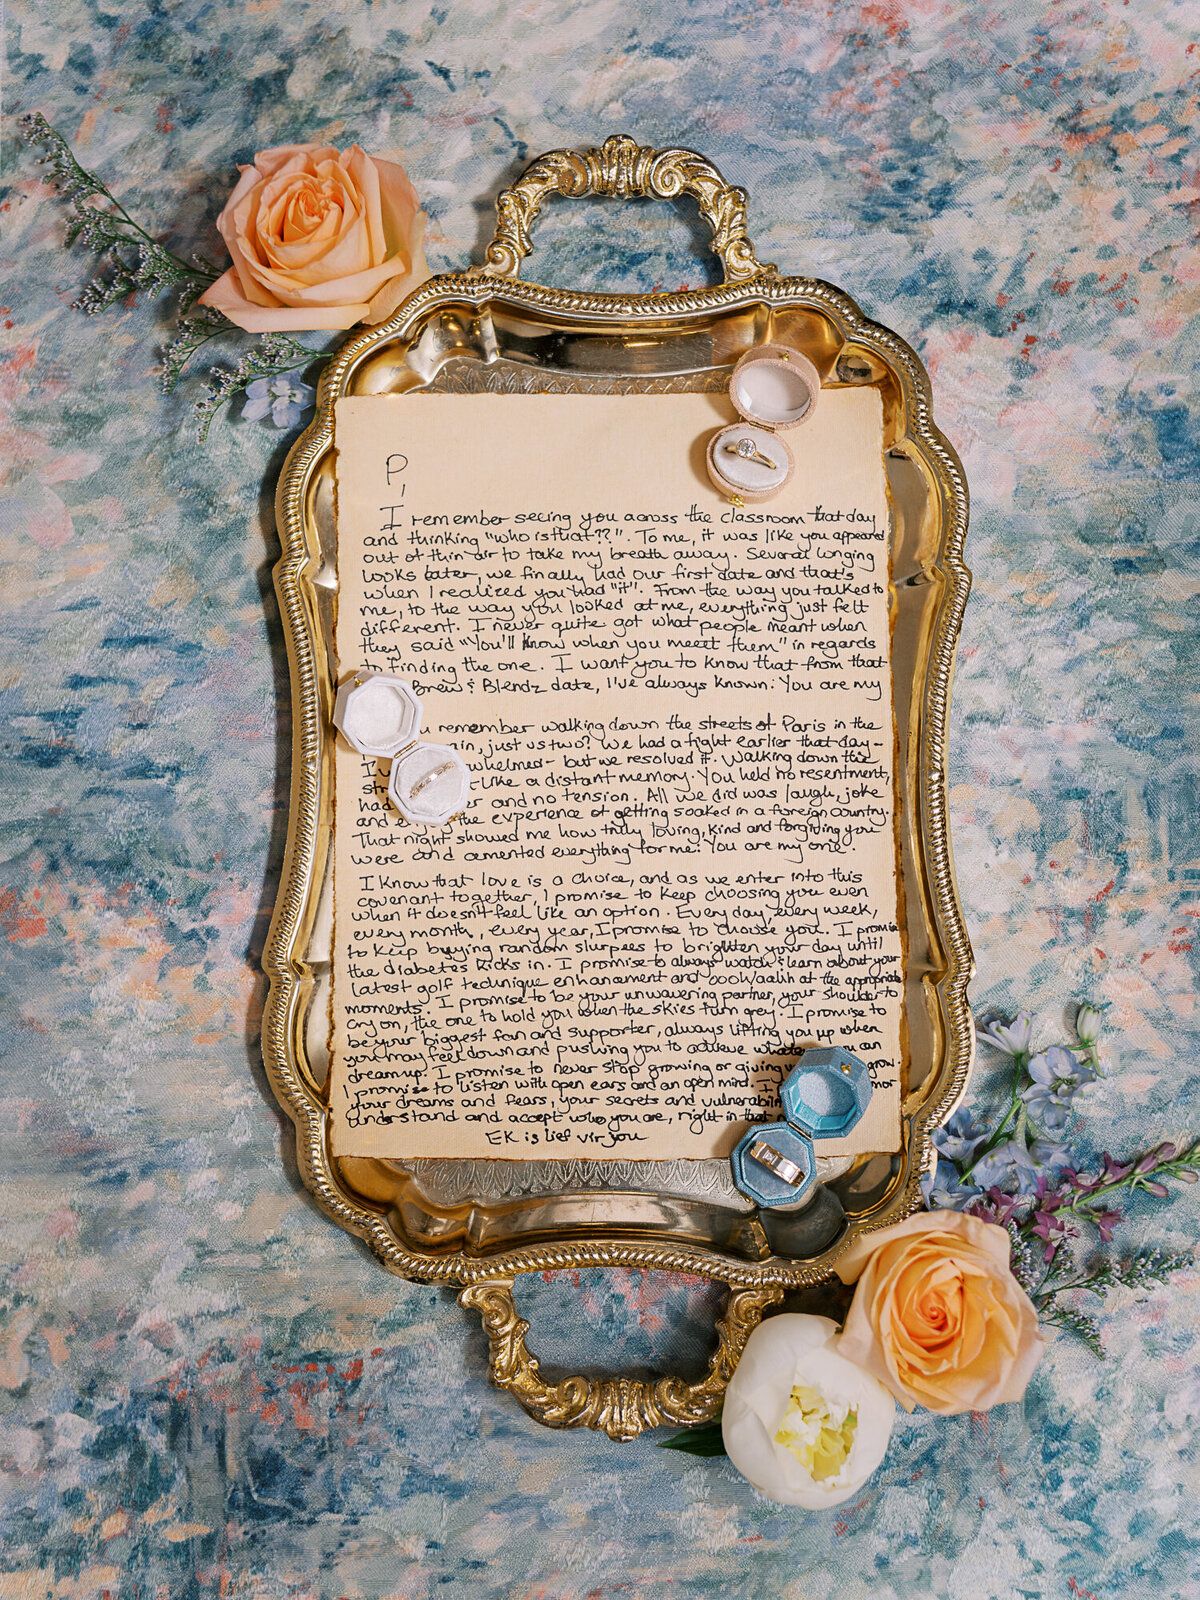 P,
I remember seeing you across the classroom that day
and thinking "who is that??". To me, it was like you appeared
out of thin air to take my breath away. Several longing
looks later, we finally had our first date and that's
when I realized you had "it". From the way you talked to
me, to the way you looked at me, everything just felt
different. I never quite got what people meant when
they said "You'll know when you meet them" in regards
to finding the one. I want you to know that from that
Brew & Blendz date, I've always known: You are my
remember walking down the streets of Paris in the
just us two? We had a fight earlier that day-
but we resolved it. Walking down the
like a distant memory. You held no resentment,
had and no tension. All we did was laugh, joke
and the experience of getting soaked in a foreign country.
That night showed me how truly loving, kind and forgiving you
were and cemented everything for me: You are my one.
I know that love is a choice, and as we enter into this
covenant together, I promise to keep choosing you even
when it doesn't feel like an option. Every day, every week,
every month, every year, I promise to choose you. I promise
to keep buying random slurpees to brighten your day until
the diabetes kicks in. I promise to always watch & learn about your
latest golf technique enhancement and oooh/aahh at the appropriate
moments. I promise to be your unwavering partner, your shoulder to
cry on, the one to hold you when the skies turn grey. I promise to
be your biggest fan and supporter, always lifting you up when
you may feel down and pushing you to achieve you can
dream up. I promise to never stop growing or giving grow.
I promise to listen with open ears and an open mind.
your dreams and fears, your secrets and
understand and accept who you are, right in that
EK is lief vir jou